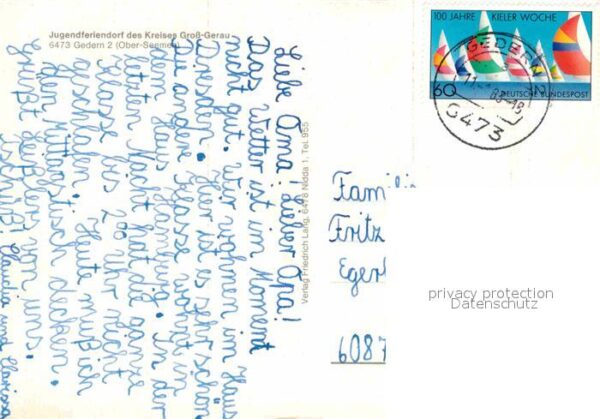 Jugendferiendorf des Kreises Groß-Gerau
6473 Gedern 2 (Ober-Seemen)
Liebe Oma! Lieber Opa!
Das Wetter ist im Moment
nicht gut. Wir wohnen im Haus
Dresden. Hier ist es sehr schön.
Die andere Klasse wohnt in
dem Haus Hamburg. In der
letzten Nacht hat die ganze
Klasse bis 2 00 Uhr nicht
geschlafen. Heute muß ich
den Mittagstisch decken.
Grüßt Seßlers von uns.
Tschüß! Claudia und
Verlag Friedrich Lang, 6478 Nidda 1, Tel. 955
100 JAHRE KIELER WOCHE
60 DEUTSCHE BUNDESPOST
GEDERN 2
6473
Famili
Fritz
Eger
6087
privacy protection
Datenschutz